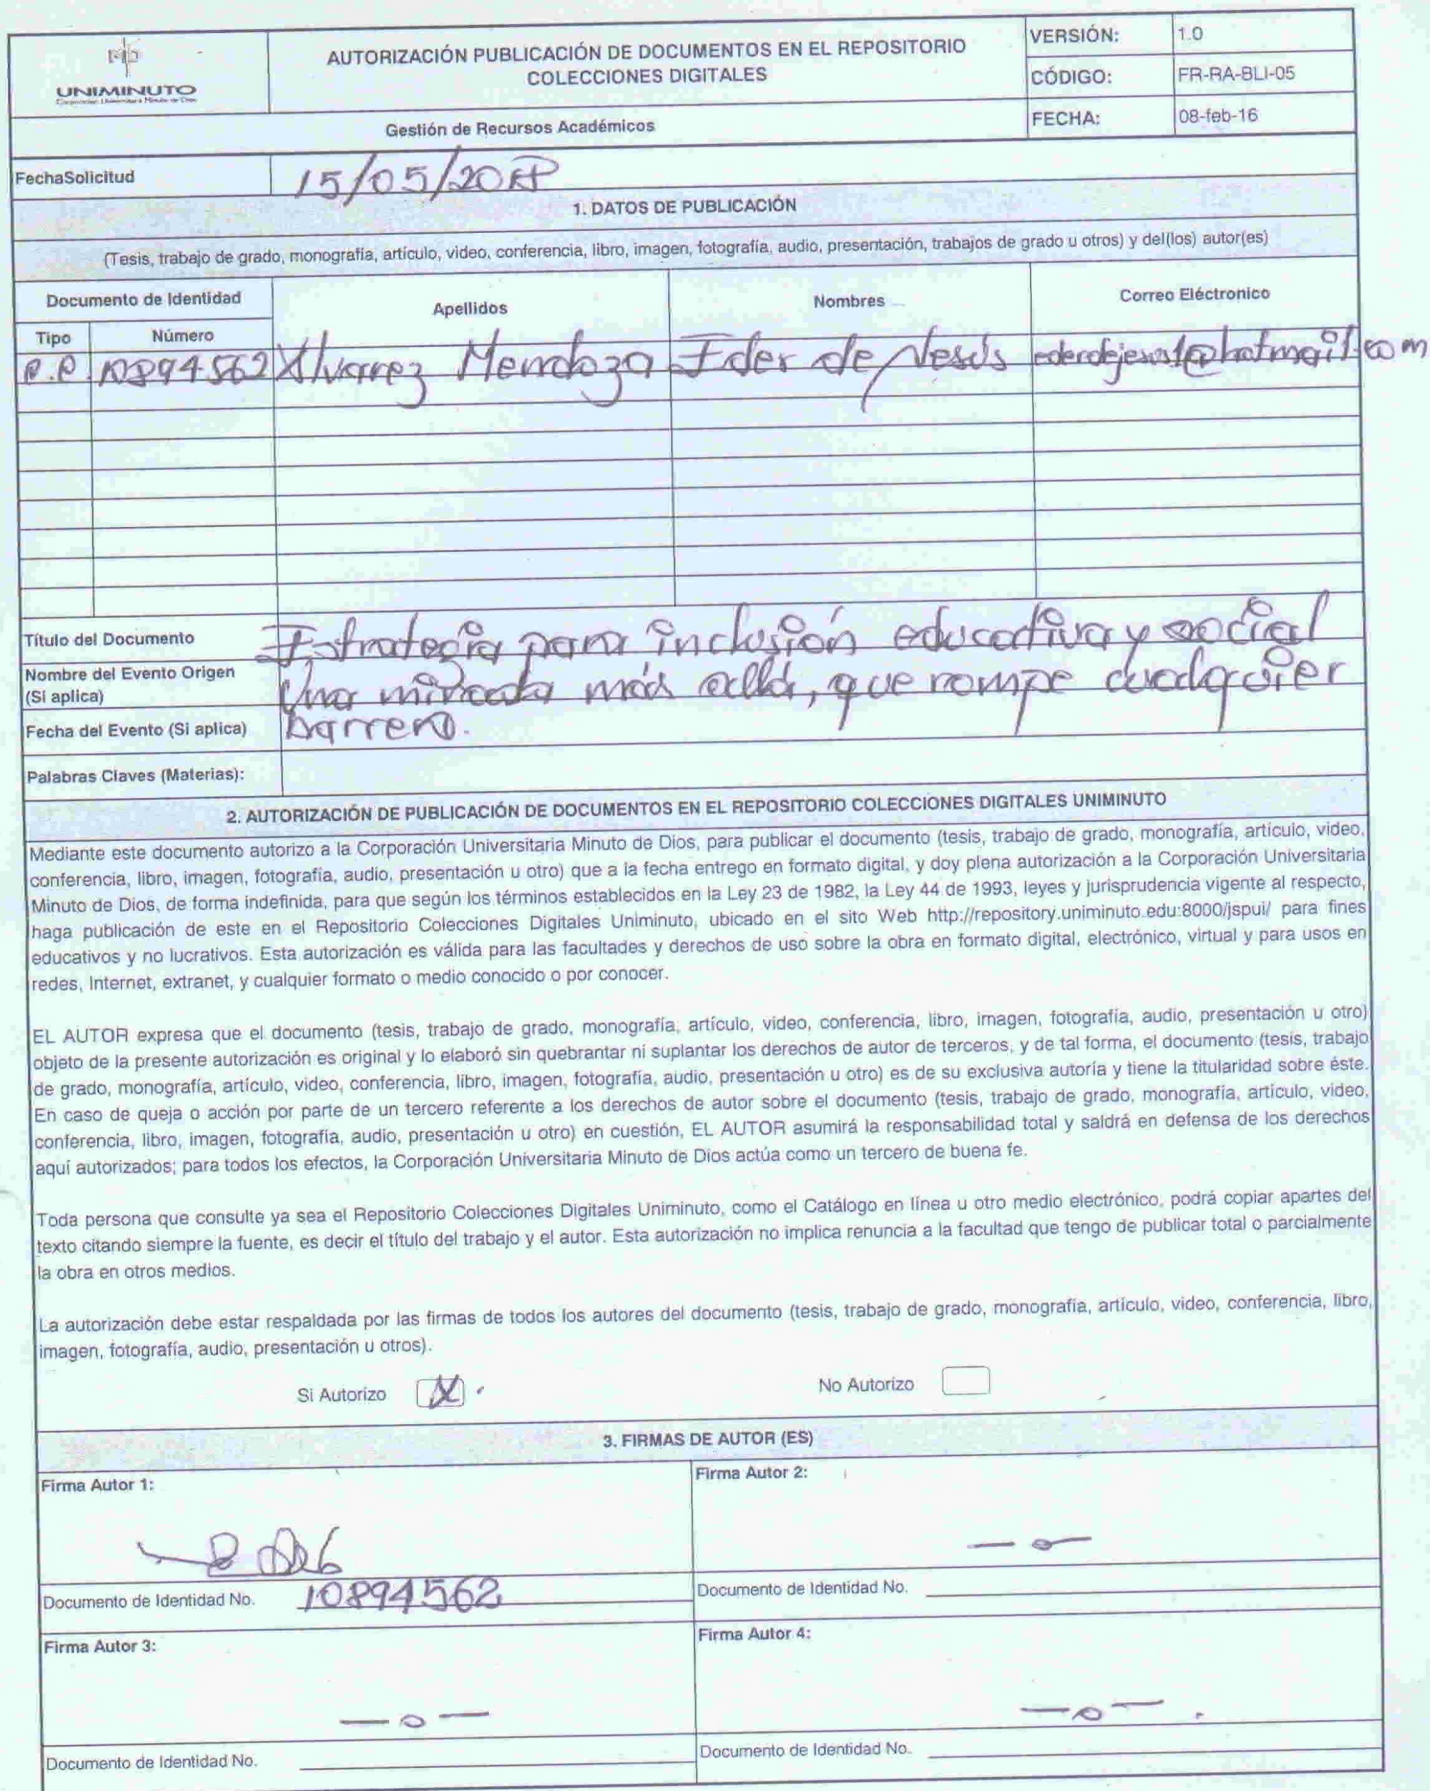 UNIMINUTO
Corporación Universitaria Minuto de Dios
AUTORIZACIÓN PUBLICACIÓN DE DOCUMENTOS EN EL REPOSITORIO
COLECCIONES DIGITALES
Gestión de Recursos Académicos
VERSIÓN: 1.0
CÓDIGO: FR-RA-BLI-05
FECHA: 08-feb-16
FechaSolicitud 15/05/20
1. DATOS DE PUBLICACIÓN
(Tesis, trabajo de grado, monografía, artículo, video, conferencia, libro, imagen, fotografía, audio, presentación, trabajos de grado u otros) y del(los) autor(es)
Documento de Identidad Apellidos Nombres Correo Eléctronico
Tipo Número
10894562 Alvarez Mendoza Eder de Jesús
Título del Documento Estrategia para inclusión educativa y social
Nombre del Evento Origen
(Si aplica) Una mirada más allá, que rompe cualquier
Fecha del Evento (Si aplica) barrera.
Palabras Claves (Materias):
2. AUTORIZACIÓN DE PUBLICACIÓN DE DOCUMENTOS EN EL REPOSITORIO COLECCIONES DIGITALES UNIMINUTO
Mediante este documento autorizo a la Corporación Universitaria Minuto de Dios, para publicar el documento (tesis, trabajo de grado, monografía, artículo, video,
conferencia, libro, imagen, fotografía, audio, presentación u otro) que a la fecha entrego en formato digital, y doy plena autorización a la Corporación Universitaria
Minuto de Dios, de forma indefinida, para que según los términos establecidos en la Ley 23 de 1982, la Ley 44 de 1993, leyes y jurisprudencia vigente al respecto,
haga publicación de este en el Repositorio Colecciones Digitales Uniminuto, ubicado en el sito Web http://repository.uniminuto.edu:8000/jspui/ para fines
educativos y no lucrativos. Esta autorización es válida para las facultades y derechos de uso sobre la obra en formato digital, electrónico, virtual y para usos en
redes, Internet, extranet, y cualquier formato o medio conocido o por conocer.
EL AUTOR expresa que el documento (tesis, trabajo de grado, monografía, artículo, video, conferencia, libro, imagen, fotografía, audio, presentación u otro)
objeto de la presente autorización es original y lo elaboró sin quebrantar ni suplantar los derechos de autor de terceros, y de tal forma, el documento (tesis, trabajo
de grado, monografía, artículo, video, conferencia, libro, imagen, fotografía, audio, presentación u otro) es de su exclusiva autoría y tiene la titularidad sobre éste.
En caso de queja o acción por parte de un tercero referente a los derechos de autor sobre el documento (tesis, trabajo de grado, monografía, artículo, video,
conferencia, libro, imagen, fotografía, audio, presentación u otro) en cuestión, EL AUTOR asumirá la responsabilidad total y saldrá en defensa de los derechos
aquí autorizados; para todos los efectos, la Corporación Universitaria Minuto de Dios actúa como un tercero de buena fe.
Toda persona que consulte ya sea el Repositorio Colecciones Digitales Uniminuto, como el Catálogo en línea u otro medio electrónico, podrá copiar apartes del
texto citando siempre la fuente, es decir el título del trabajo y el autor. Esta autorización no implica renuncia a la facultad que tengo de publicar total o parcialmente
la obra en otros medios.
La autorización debe estar respaldada por las firmas de todos los autores del documento (tesis, trabajo de grado, monografía, artículo, video, conferencia, libro,
imagen, fotografía, audio, presentación u otros).
Si Autorizo X No Autorizo
3. FIRMAS DE AUTOR (ES)
Firma Autor 1: Firma Autor 2:
Documento de Identidad No. 10894562 Documento de Identidad No.
Firma Autor 3: Firma Autor 4:
Documento de Identidad No. Documento de Identidad No.